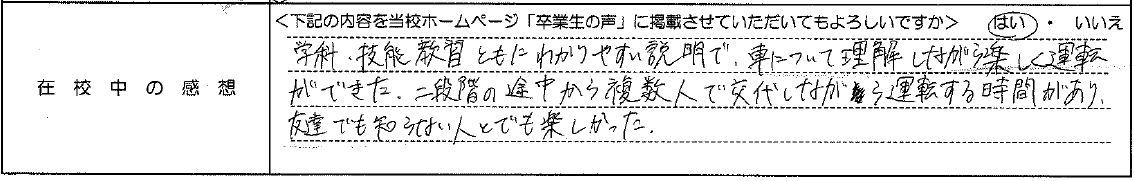 <下記の内容を当校ホームページ「卒業生の声」に掲載させていただいてもよろしいですか> はい ・ いいえ
在校中の感想
学科、技能教習ともにわかりやすい説明で、車について理解しながら楽しく運転
ができた。二段階の途中から複数人で交代しながら運転する時間があり、
友達でも知らない人とでも楽しかった。